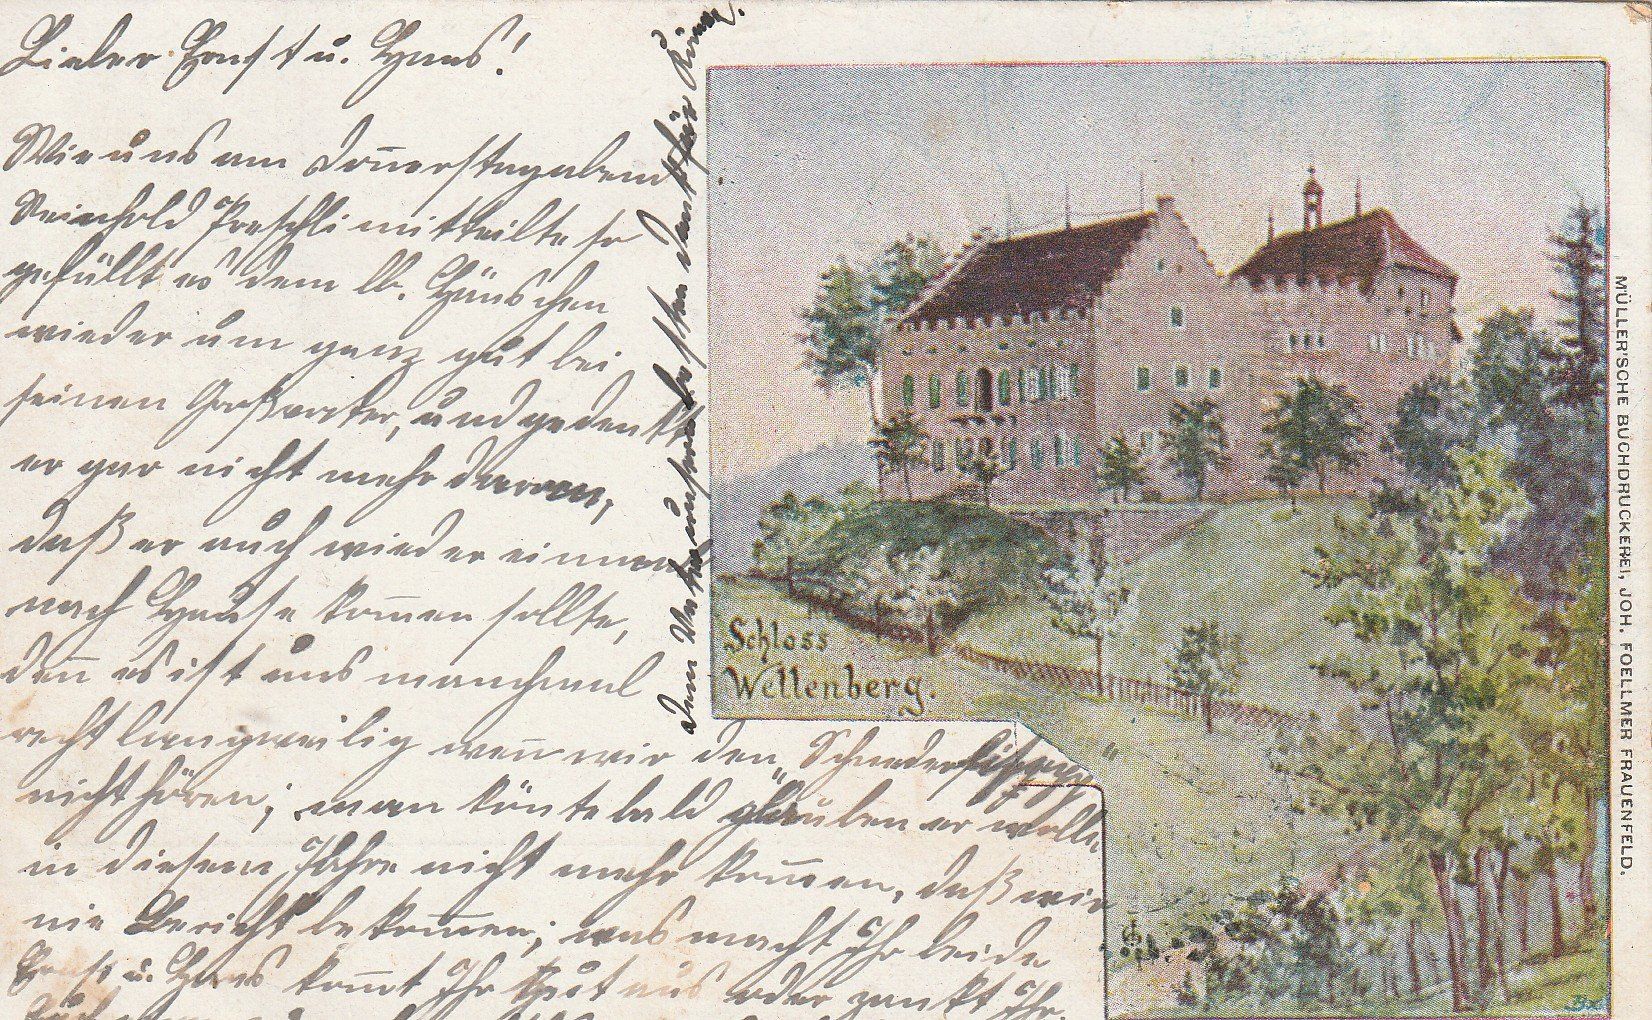 Lieber Ernst u. Hans!
Wie uns am Donnerstagabend
Reinhold mitteilte so
gefällt es dem lb. Hänschen
wieder um ganz gut bei
seinen Großvater, und gedenkt
er gar nicht mehr daran,
daß er auch wieder einmal
nach Hause kom̄en sollte,
den̄ es ist uns manchmal
recht langweilig wen̄ wir den
nicht hören; man kön̄te bald glauben er wolle
in diesem Jahre nicht mehr kom̄en, daß wir
nie Bericht bekom̄en; was macht Ihr beide
Ernst u. Hans kom̄t Ihr gut aus oder zankt Ihr
dem Vater unsern besten Dank für
Schloss
Wellenberg.
MÜLLER'SCHE BUCHDRUCKEREI, JOH. FOELLMER FRAUENFELD.